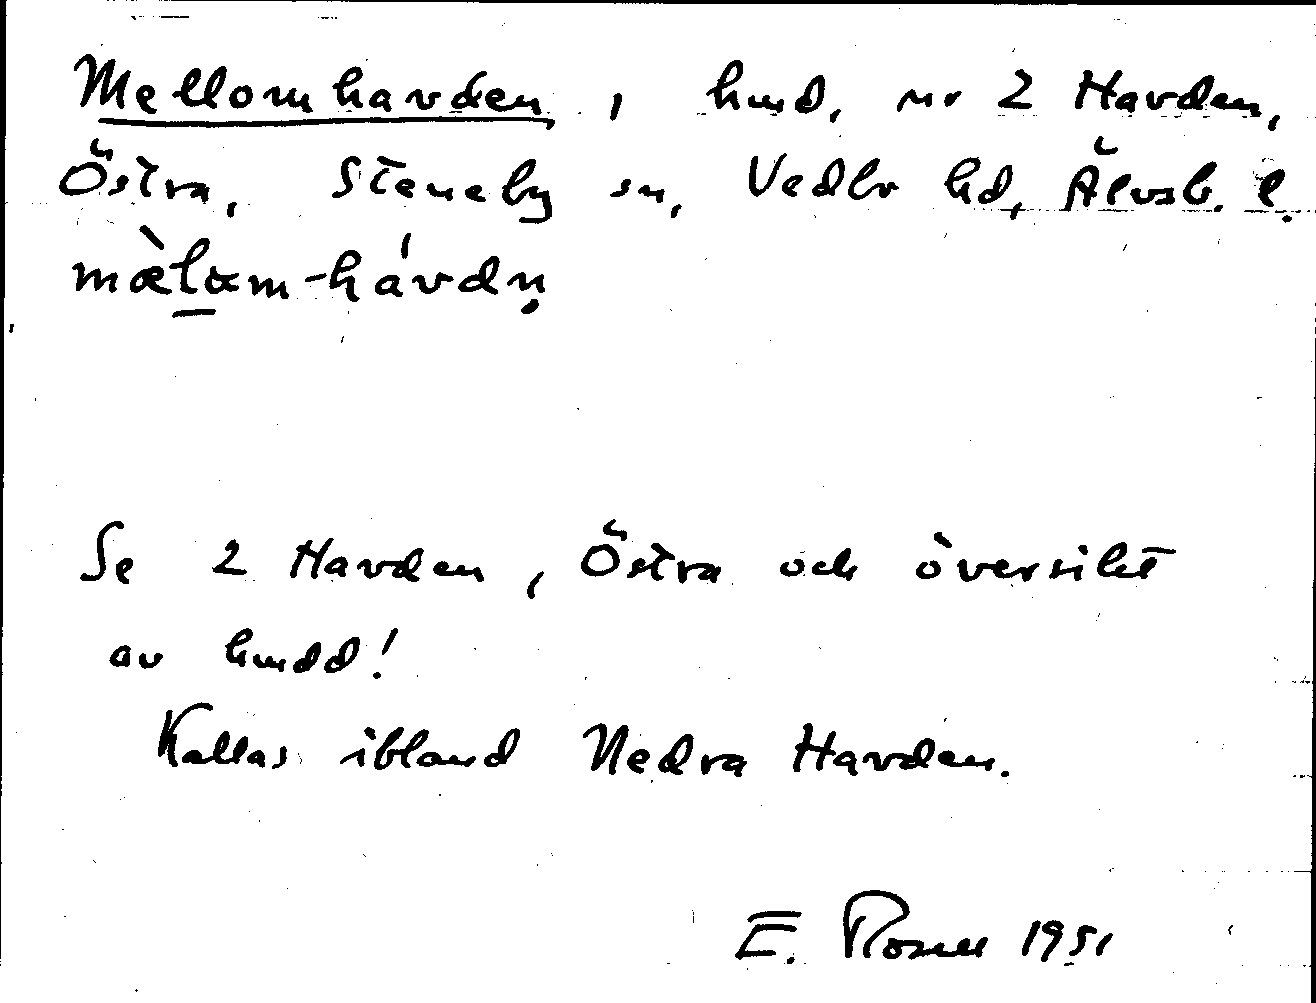 Mellomhavden, hmd, nr 2 Havden,
Östra, Steneby sn, Vedbo hd, Älvsb. l.
mæ̀lam-hávdn̥
Se 2 Havden, Östra och översikt
av hmdd!
Kallas ibland Nedra Havden.
E. Rosell 1951